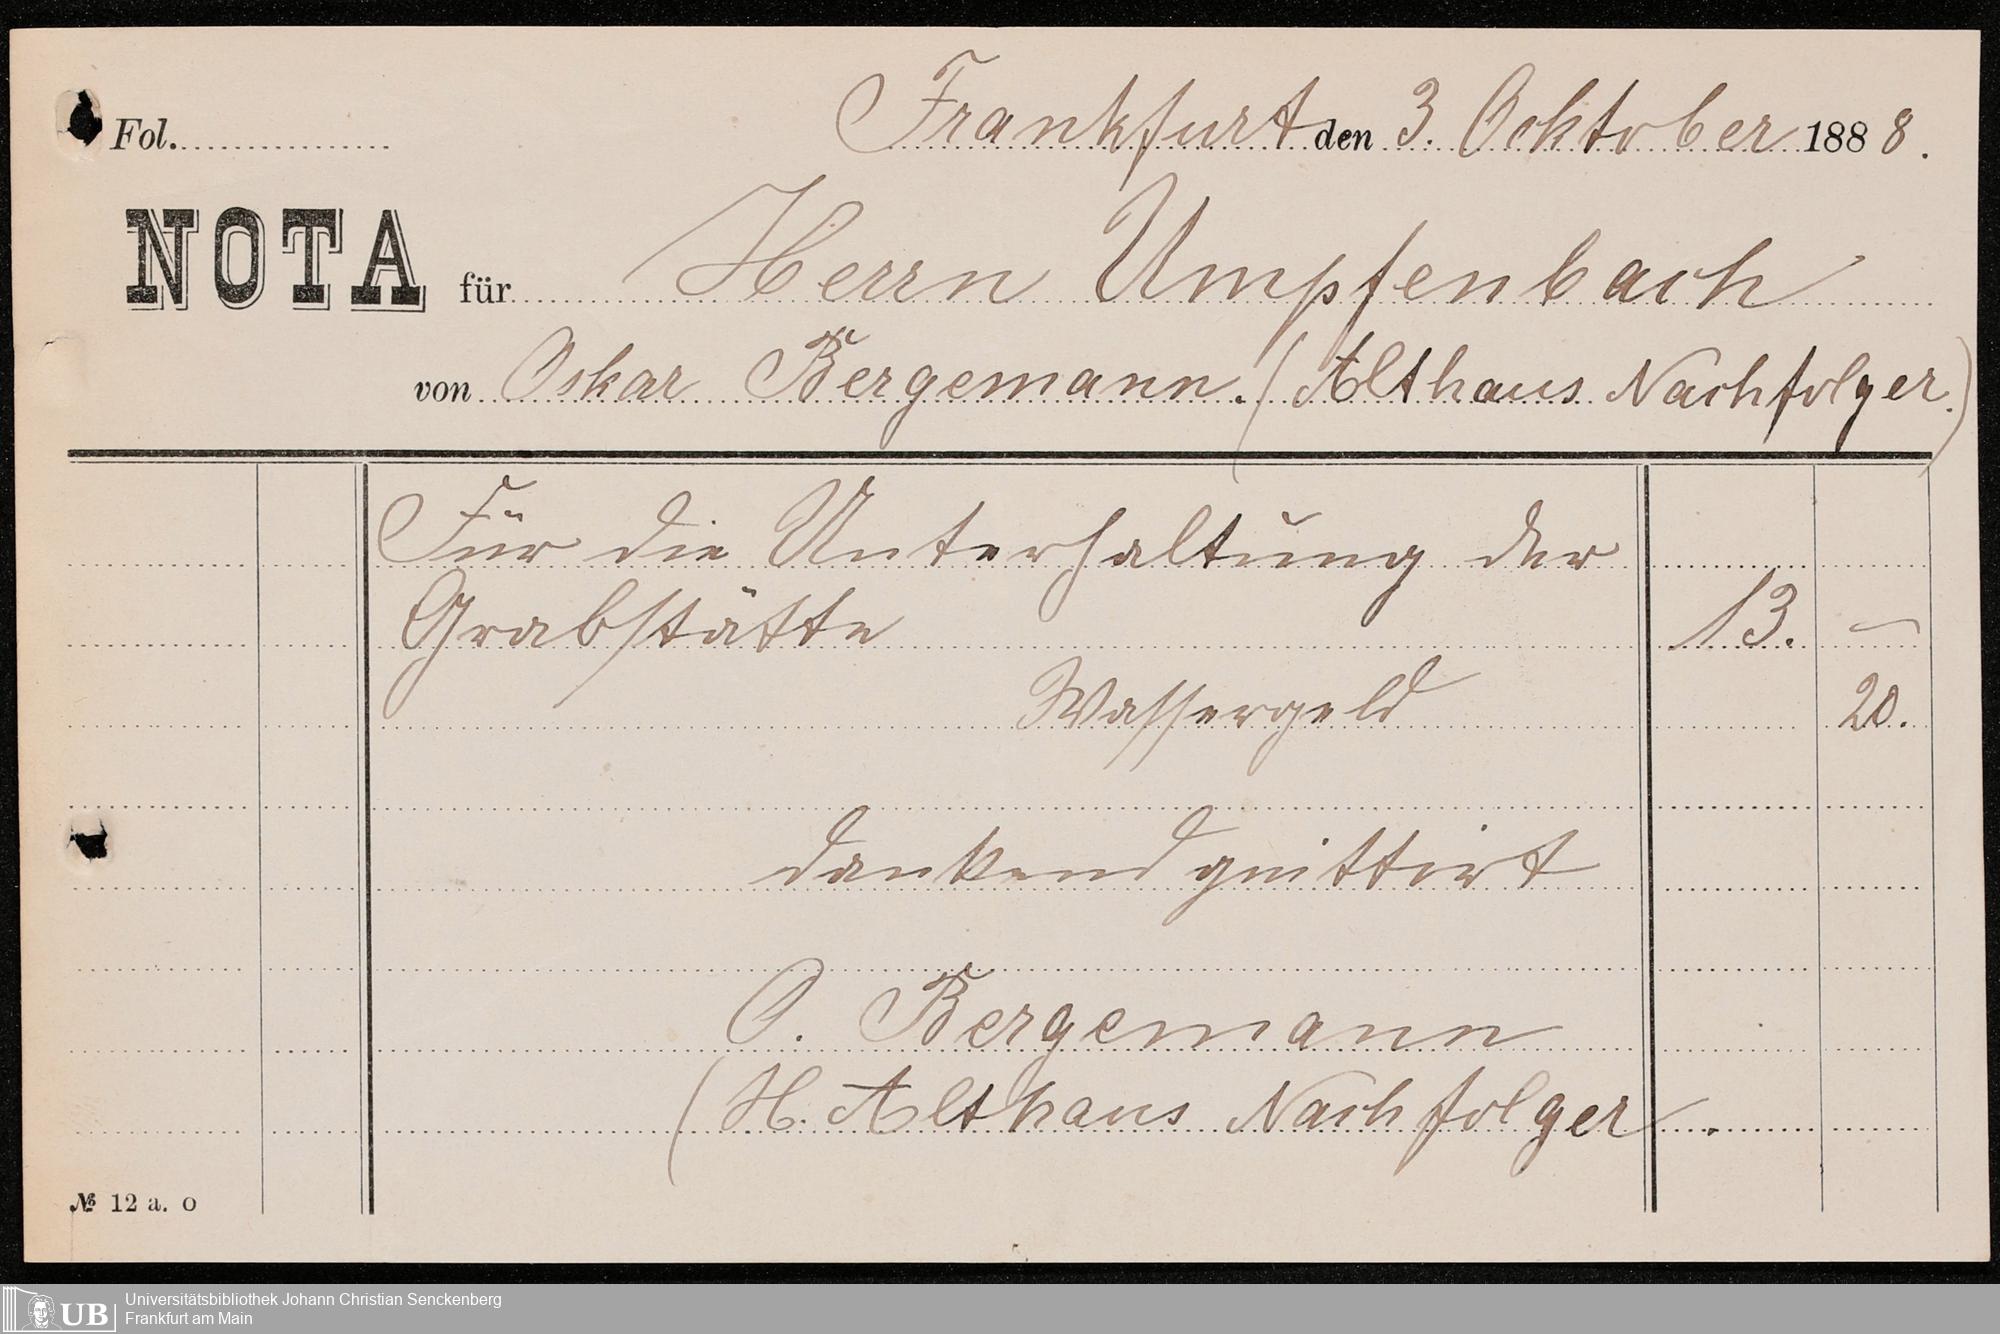 Fol. Frankfurt den 3. Ocktober 1888.
NOTA für Herrn Umpfenbach
von Oskar Bergemann. (Althaus Nachfolger.)
Für die Unterhaltung der
Grabstätte 13. —
Wassergeld 20.
dankend quittirt
O. Bergemann
(H. Althaus Nachfolger.
№ 12 a. o
UB Universitätsbibliothek Johann Christian Senckenberg
Frankfurt am Main